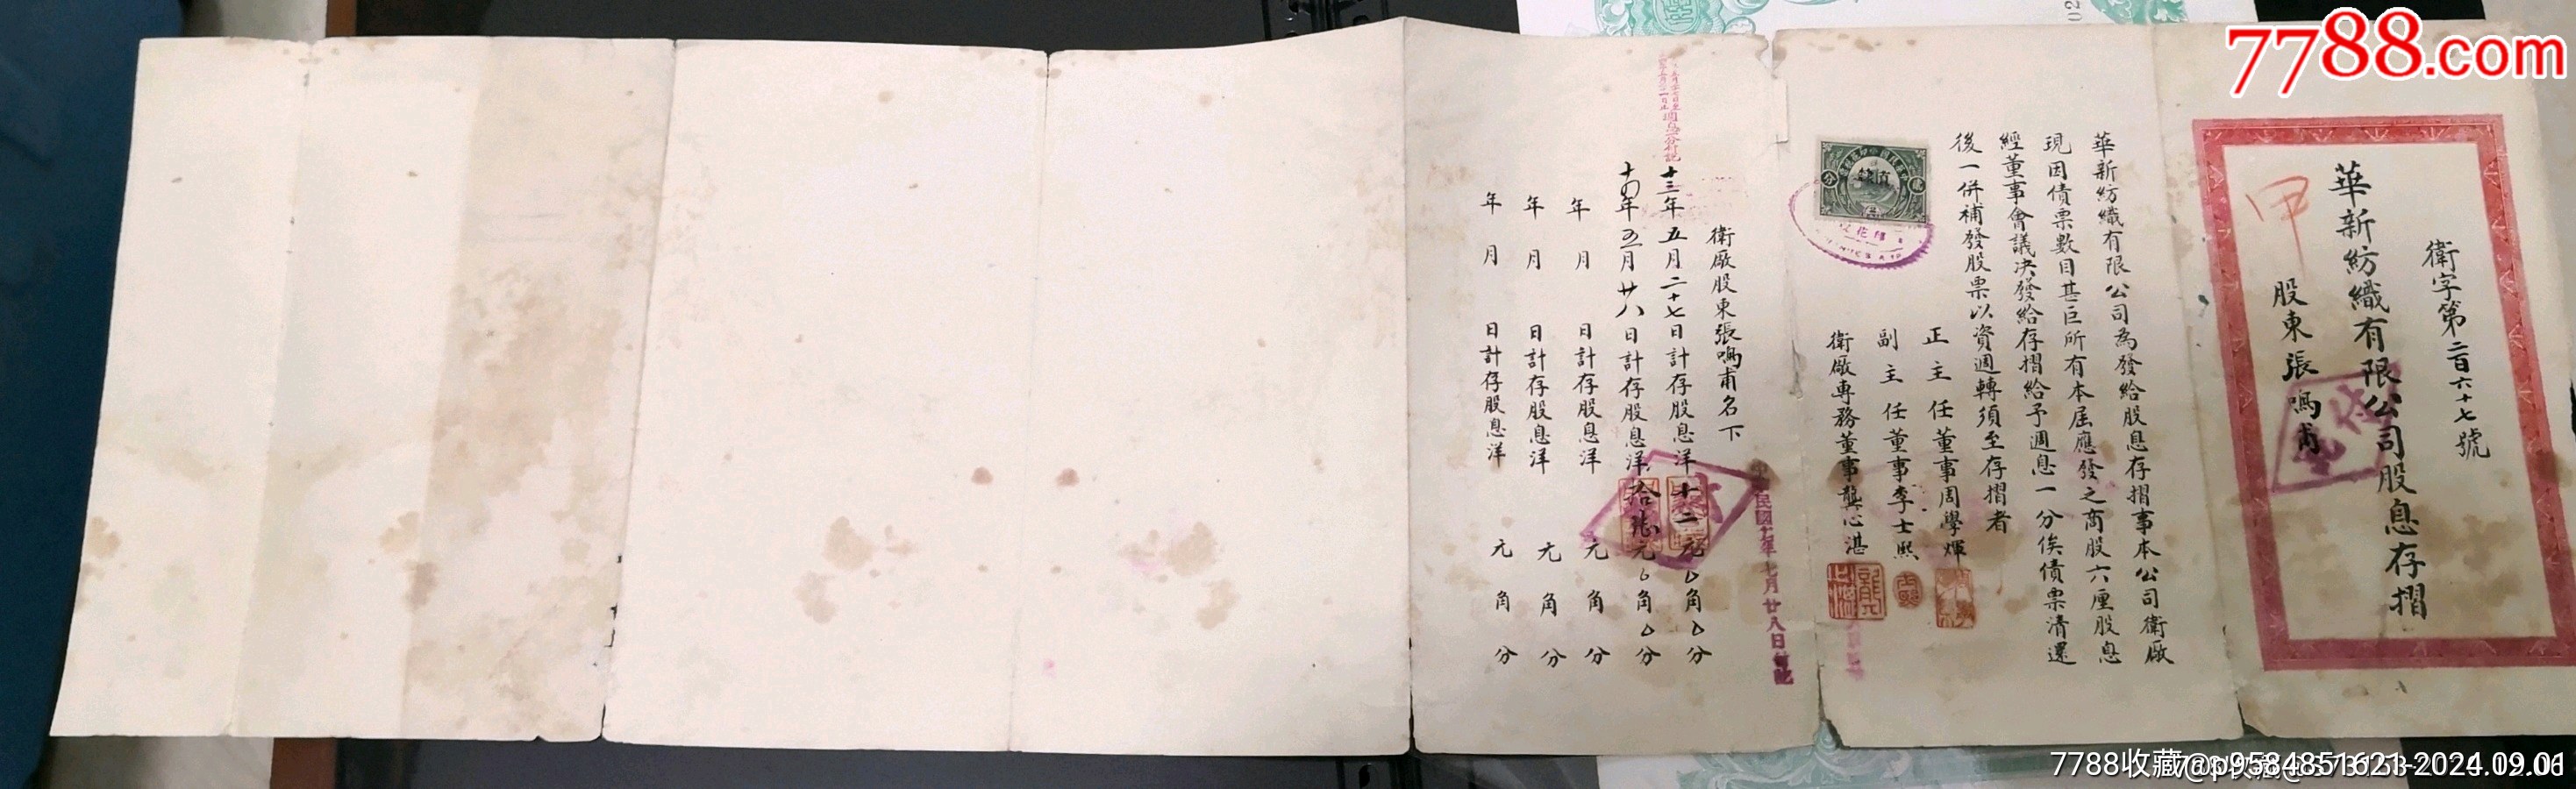 7788.com
衛字第二百六十七號
華新紡織有限公司股息存摺
股東張鳴甫
甲
華新紡織有限公司為發給股息存摺事本公司衛廠
現因債票數目甚巨所有本屆應發之商股六厘股息
經董事會議決發給存摺給予週息一分俟債票清還
後一併補發股票以資週轉須至存摺者
正主任董事周學煇
副主任董事李士熙
衛廠專務董事龔心湛
民國十九年七月廿八日付訖
衛廠股東張鳴甫名下
十三年五月二十七日計存股息洋十二元〇角〇分
十四年五月廿八日計存股息洋拾玖元〇角〇分
年 月 日計存股息洋 元 角 分
年 月 日計存股息洋 元 角 分
年 月 日計存股息洋 元 角 分
7788收藏@p9584851621-2024.09.01